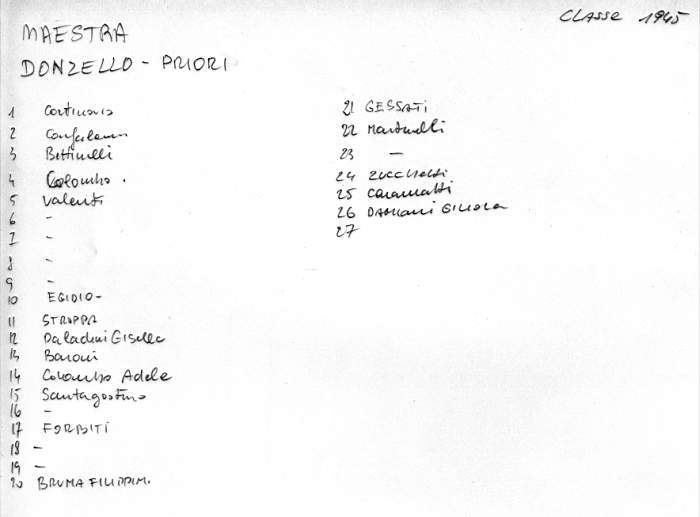 Classe 1945
MAESTRA
DONZELLO - PRIORI
1 Cortinovis
2
3 Bettinelli
4 Colombo .
5 Valenti
6 -
7 -
8 -
9 -
10 EGIDIO-
11 STROPPA
12 Paladini Giselle
13 Baroni
14 Colombo Adele
15 Santagostino
16 -
17 FORBITI
18 -
19 -
20 BRUMA FILIPPIM.
21 GESSATI
22 Martinelli
23 -
24 Zucchetti
25 Caramatti
26 DAMIANI GILIOLA
27